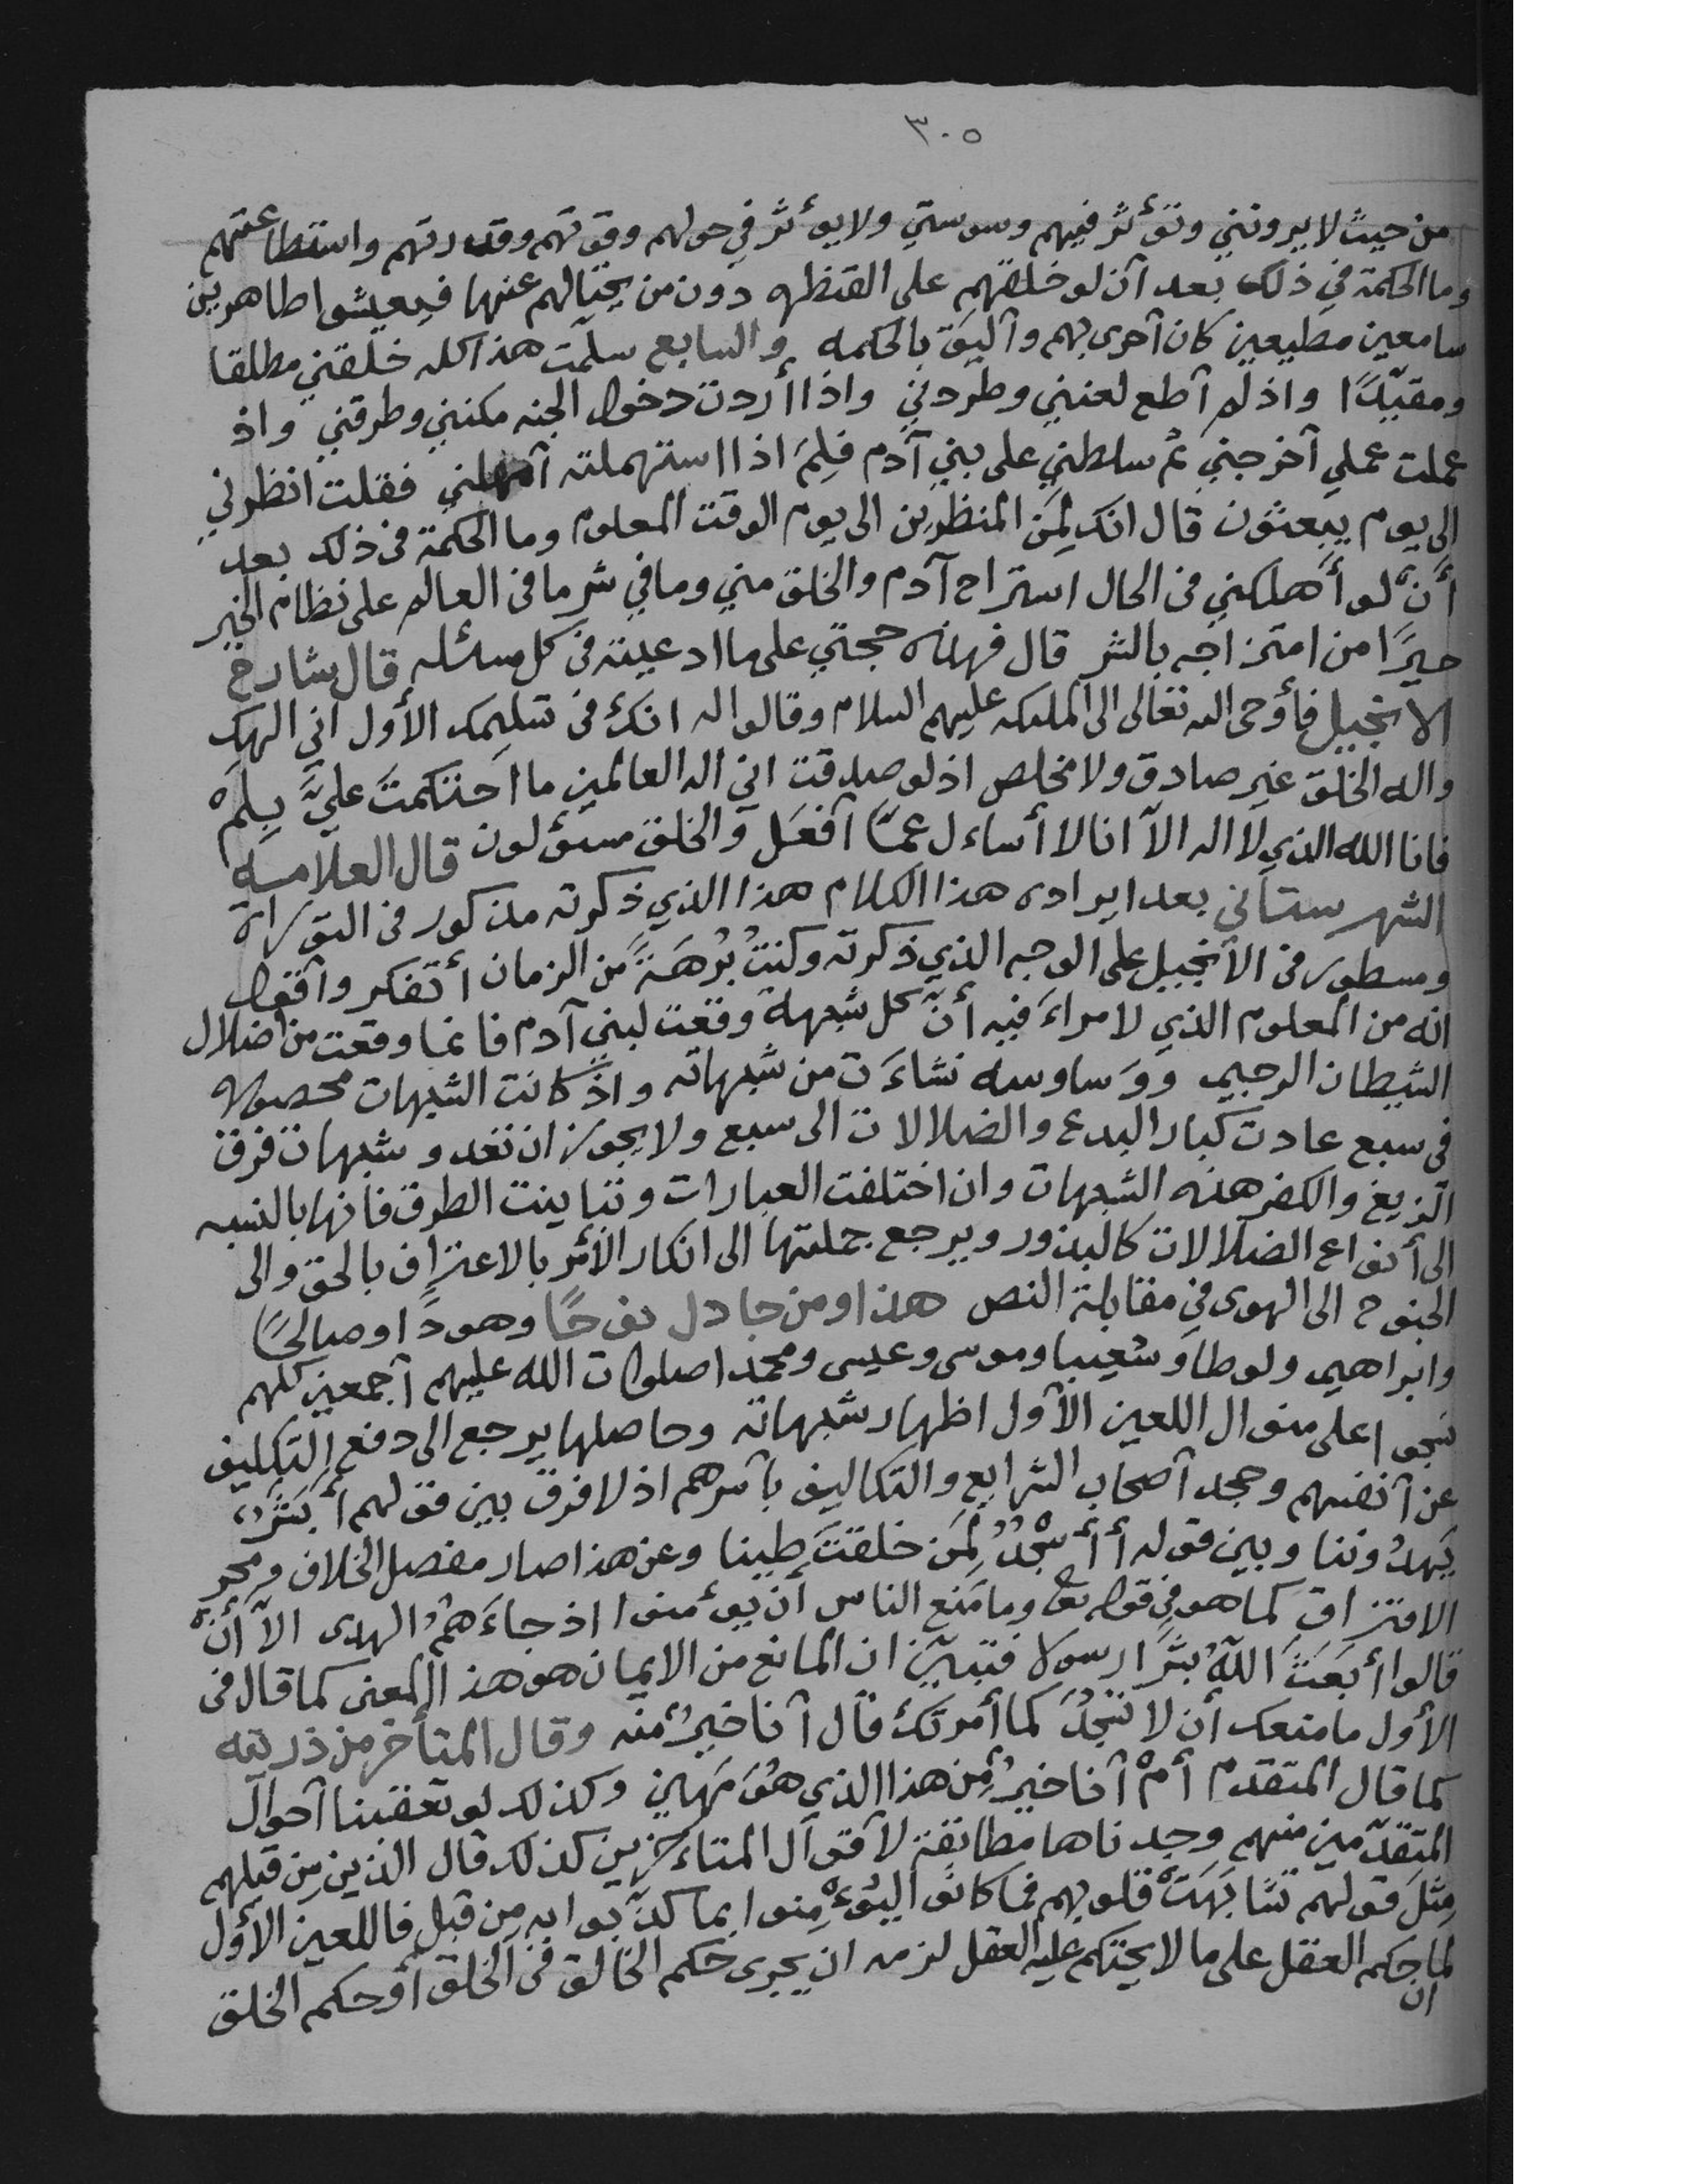 ٣٠٥
من حيث لا يرونني وتؤثر فيهم وسوستي ولا يؤثر في حولهم وقوتهم وقدرتهم واستطاعتهم
وما الحكمة في ذلك بعد أن لو خلقهم على الفطره دون من يحتالهم عنها فيعيشوا طاهرين
سامعين مطيعين كان أحرى بهم وأليق بالحكمه والسابع سلمت هذا كله خلقني مطلقا
ومقيّدًا واذ لم أطع لعنني وطردني واذا أردت دخول الجنه مكنني وطرقني واذ
عملت عملي أخرجني ثم سلطني على بني آدم فلِمَ اذا استمهلته أمهلني فقلت انظرني
الى يوم يبعثون قال انك لمن المنظرين الى يوم الوقت المعلوم وما الحكمة في ذلك بعد
أنّ لو أهلكني في الحال استراح آدم والخلق مني وما في شر ما في العالم على نظام الخير
خيرًا من امتزاجه بالشر قال فهذه حجتي على ما ادعيته في كل مسئله قال شارح
الانجيل فأوحى الله تعالى الى الملئكه عليهم السلام وقالوا له انك في تسليمك الأول اني الهك
واله الخلق غير صادق ولا مخلص اذ لو صدقت اني اله العالمين ما احتكمت عليَّ بِلِمَ
فانا الله الذي لا اله الاّ انا لا أساءل عمّا أفعل والخلق مسؤلون قال العلامه
الشهرستاني بعد ايرادى هذا الكلام هذا الذي ذكرته مذكور في التوراة
ومسطور في الأنجيل على الوجه الذي ذكرته وكنتُ بُرهَةً من الزمان أتفكر وأقول
انه من المعلوم الذي لا مراءَ فيه أنّ كل شبهة وقعت لبني آدم فانما وقعت من اضلال
الشيطان الرجيم ووَساوسه نشاءَت من شبهاته واذ كانت الشبهات محصوله
في سبع عادت كبار البدع والضلالات الى سبع ولا يجوز ان تغدو شبهات فرق
الزيغ والكفر هذه الشبهات وان اختلفت العبارات وتباينت الطرق فانها بالنسبه
الى أنواع الضلالات كالبذور ويرجع جملتها الى انكار الأمر بالاعتراف بالحق والى
الجنوح الى الهوى في مقابلة النص هذا ومن جادل نوحًا وهودًا وصالحًا
وابراهيم ولوطا وشعيبا وموسى وعيسى ومحمدا صلوات الله عليهم أجمعين كلهم
نسجوا على منوال اللعين الأول اظهار شبهاته وحاصلها يرجع الى دفع التكليف
عن أنفسهم وجحد أصحاب الشرايع والتكاليف بأسرهم اذ لا فرق بين قولهم أَبَشَرٌ
يَهدُوننا وبين قوله أأسْجُدُ لِمَن خلقتَ طينا وعن هذا صار مفصل الخلاف ومحز
الافتراق كما هو في قوله تع وما مَنع الناس أن يؤمنوا اذ جاءَهُمُ الهدى الاّ أنّ
قالوا أبَعَثَ اللهُ بشَرًا رسولا فتبيّن ان المانع من الايمان هو هذا المعنى كما قال في
الأول ما منعك أن لا تسجُدَ كما أمرتكَ قال أنا خيرٌ منه وقال المتأخر من ذريته
كما قال المتقدم أمْ أنا خيرٌ مِن هذا الذي هُوَ مَهين وكذلك لو تعقبنا أحوال
المتقدّمين منهم وجدناها مطابقة لأقوال المتاءخرين كذلك قال الذين مِن قبلهم
مِثلَ قولهم تشَابَهَتْ قلوبهم فما كانوا ليؤْمِنوا بما كذّبوا به مِن قبل فاللعين الأول
لما حكم العقل على ما لا يحتكم عليه العقل لزمه ان يجرى حكم الخالق في الخلق أو حكم الخلق
ان